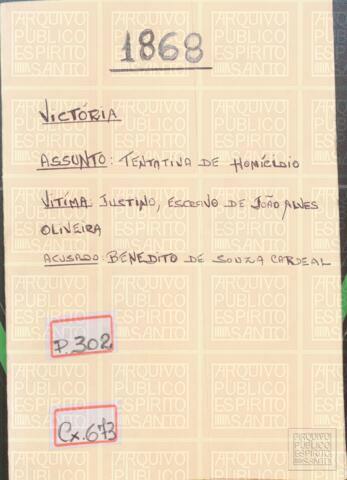 1868
VICTÓRIA
ASSUNTO: TENTATIVA DE HOMICÍDIO
VITIMA: JUSTINO, ESCRAVO DE JOÃO ALVES
OLIVEIRA
ACUSADO: BENEDITO DE SOUZA CARDEAL
P.302
Cx.673
ARQUIVO
PÚBLICO
ESPÍRITO
SANTO